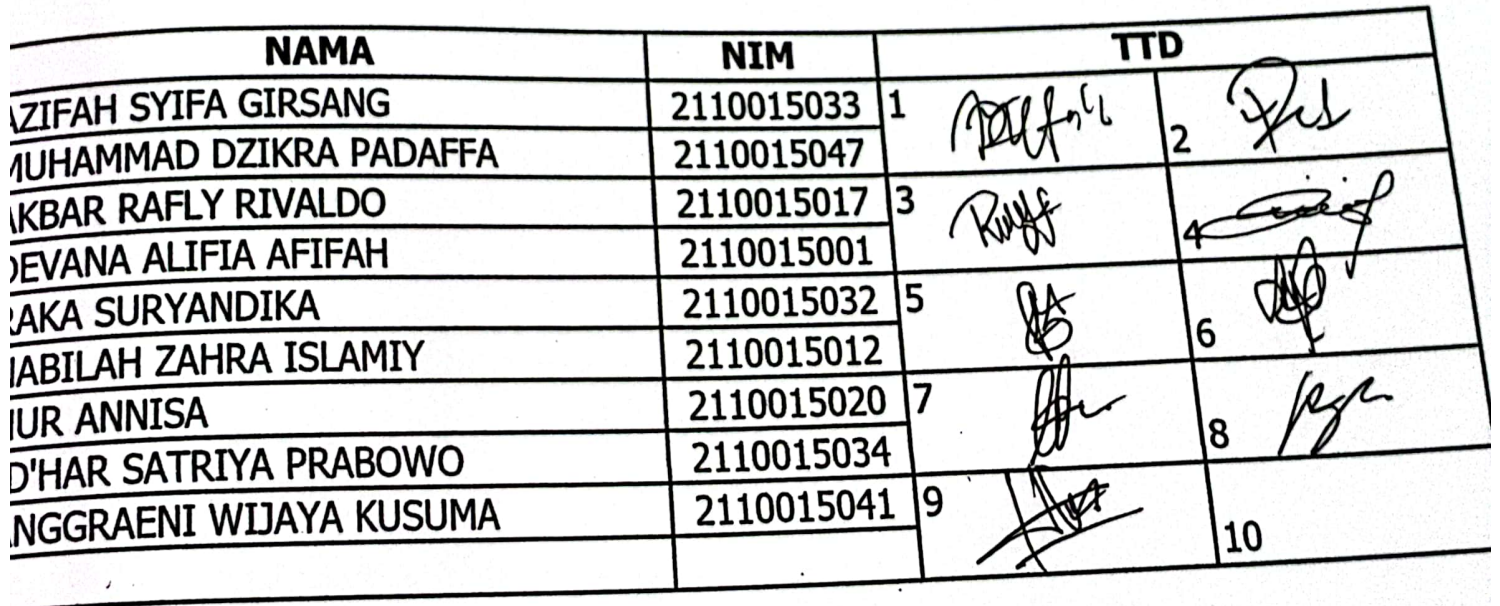 NAMA NIM TTD
AZIFAH SYIFA GIRSANG 2110015033 1 2
MUHAMMAD DZIKRA PADAFFA 2110015047
AKBAR RAFLY RIVALDO 2110015017 3 4
DEVANA ALIFIA AFIFAH 2110015001
RAKA SURYANDIKA 2110015032 5 6
NABILAH ZAHRA ISLAMIY 2110015012
NUR ANNISA 2110015020 7 8
D'HAR SATRIYA PRABOWO 2110015034
ANGGRAENI WIJAYA KUSUMA 2110015041 9 10